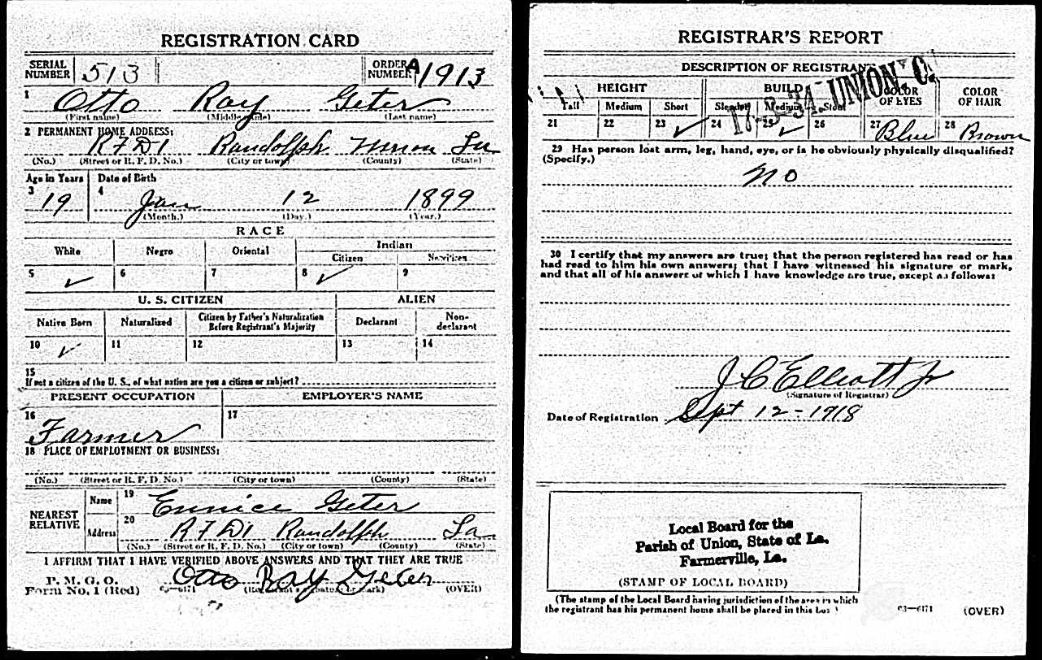 REGISTRATION CARD
SERIAL NUMBER 513 ORDER NUMBER A1913
1 Otto Ray Geter
(First name) (Middle name) (Last name)
2 PERMANENT HOME ADDRESS:
RFD1 Randolph Union La
(No.) (Street or R. F. D. No.) (City or town) (County) (State)
Age in Years Date of Birth
3 19 4 Jan 12 1899
(Month.) (Day.) (Year.)
RACE
White Negro Oriental Indian
Citizen
5 ✓ 6 7 8 ✓ 9
U. S. CITIZEN ALIEN
Native Born Naturalized Citizen by Father's Naturalization Before Registrant's Majority Declarant Non-declarant
10 ✓ 11 12 13 14
15
If not a citizen of the U. S., of what nation are you a citizen or subject?
PRESENT OCCUPATION EMPLOYER'S NAME
16 Farmer 17
18 PLACE OF EMPLOYMENT OR BUSINESS:
(No.) (Street or R. F. D. No.) (City or town) (County) (State)
NEAREST RELATIVE Name 19 Eunice Geter
Address 20 RFD1 Randolph La
(No.) (Street or R. F. D. No.) (City or town) (County) (State)
I AFFIRM THAT I HAVE VERIFIED ABOVE ANSWERS AND THAT THEY ARE TRUE
Otto Ray Geter
P. M. G. O.
Form No. 1 (Red) 03—6171 (OVER)
REGISTRAR'S REPORT
DESCRIPTION OF REGISTRANT
UNION. C.
HEIGHT BUILD COLOR OF EYES COLOR OF HAIR
Tall Medium Short Slender Medium Stout
21 22 23 ✓ 24 25 ✓ 26 27 Blue 28 Brown
29 Has person lost arm, leg, hand, eye, or is he obviously physically disqualified?
(Specify.)
no
30 I certify that my answers are true; that the person registered has read or has
had read to him his own answers; that I have witnessed his signature or mark,
and that all of his answers of which I have knowledge are true, except as follows:
J C Elliott Jr
(Signature of Registrar)
Date of Registration Sept 12-1918
Local Board for the
Parish of Union, State of La.
Farmerville, La.
(STAMP OF LOCAL BOARD)
(The stamp of the Local Board having jurisdiction of the area in which
the registrant has his permanent home shall be placed in this box.)
03—6171 (OVER)